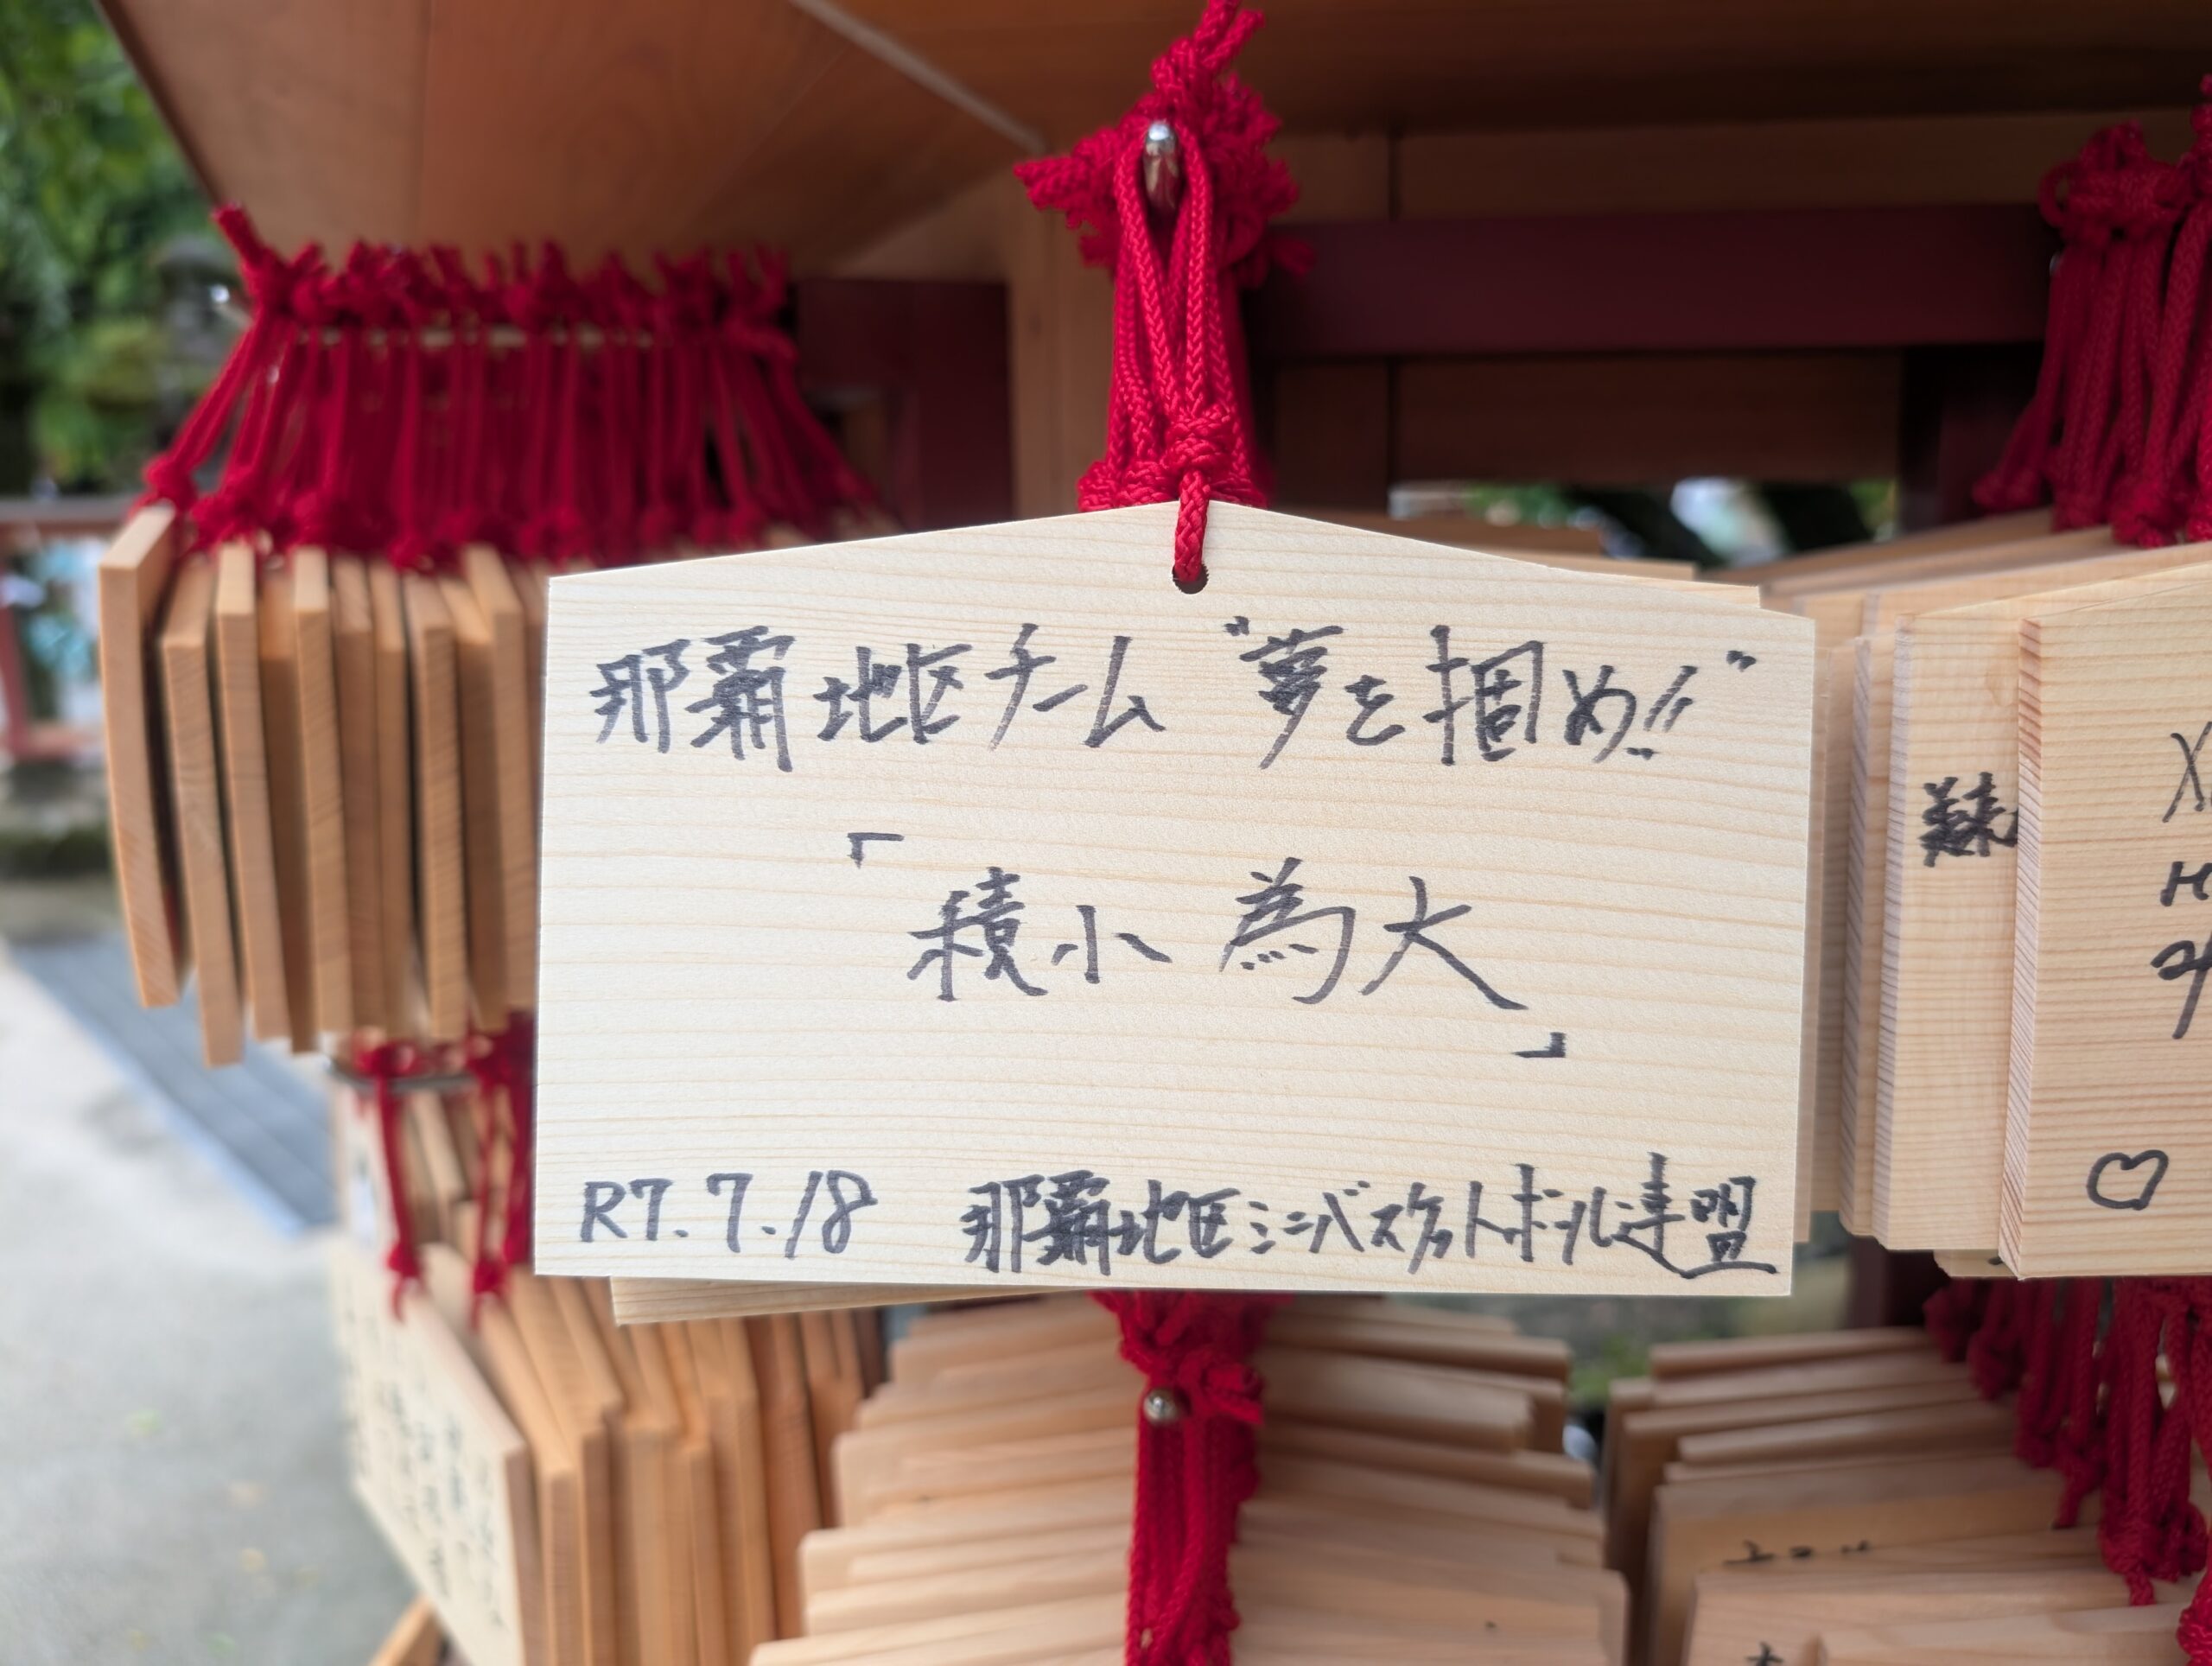 那覇地区チーム "夢を掴め!!"
「積小為大」
R7.7.18 那覇地区ミニバスケットボール連盟